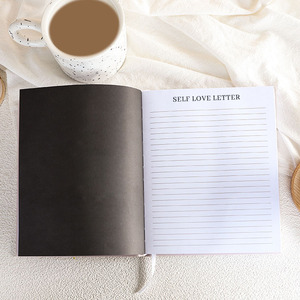 SELF LOVE LETTER